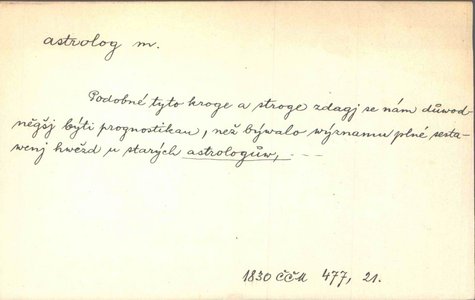 astrolog m.
Podobné tyto kroge a stroge zdagj se nám důwod-
něgšj býti prognostikau, než býwalo wýznamu plné sesta-
wenj hwězd u starých astrologůw, . — —
1830 ČČM 477, 21.